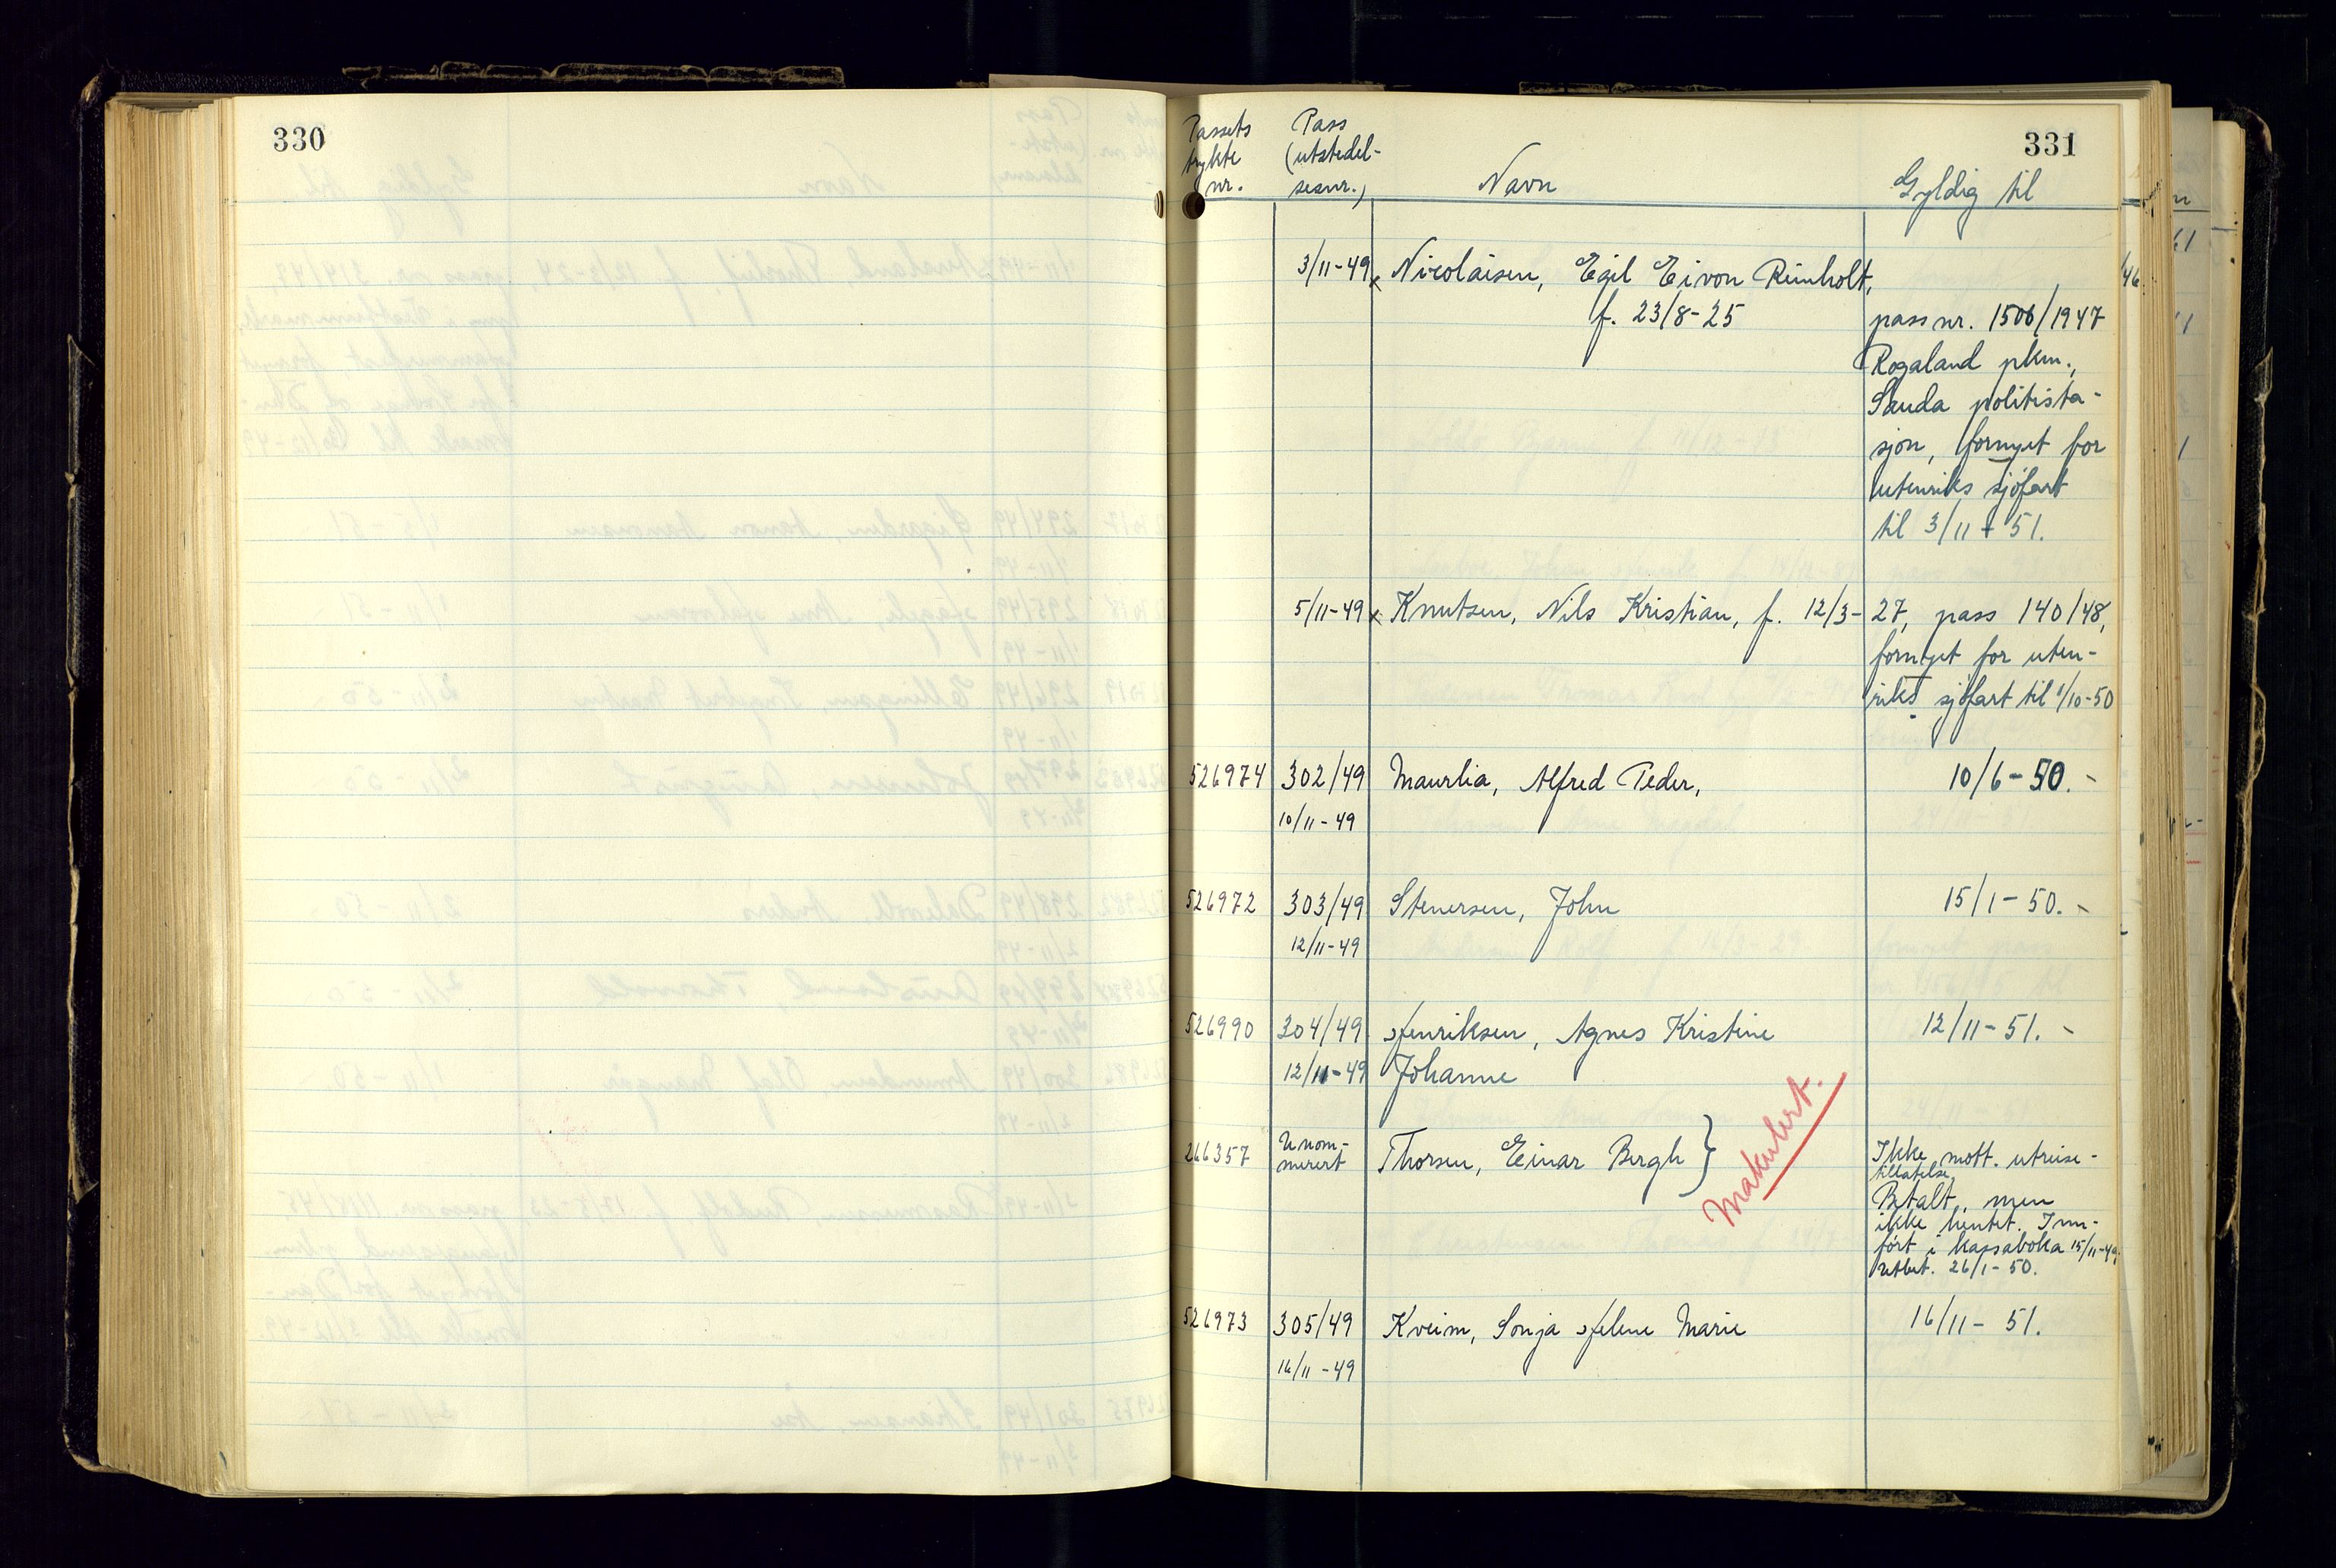 330
331
Passets trykte nr.
Pass (utstedel-sesnr.)
Navn
Gyldig til
3/11-49 x Nicolaisen, Egil Eivon Reinholt,
f. 23/8-25 pass nr. 1506/1947
Rogaland pkm.,
Sauda politista-
sjon, fornyet for
utenriks sjøfart
til 3/11-51.
5/11-49 x Knutsen, Nils Kristian, f. 12/3-27, pass 140/48,
fornyet for uten-
riks sjøfart til 1/10-50
526974 302/49 Maurlia, Alfred Peder, 10/6-50.
10/11-49
526972 303/49 Stenersen, John 15/1-50.
12/11-49
526990 304/49 Henriksen, Agnes Kristine 12/11-51.
12/11-49 Johanne
266357 Unom-merert Thorsen, Einar Bergh } Makulert. Ikke mott. utreise-
tillatelse
Betalt, men
ikke hentet. Inn-
ført i kassaboka 15/11-49,
utbet. 26/1-50.
526973 305/49 Kveim, Sonja Helene Marie 16/11-51.
16/11-49